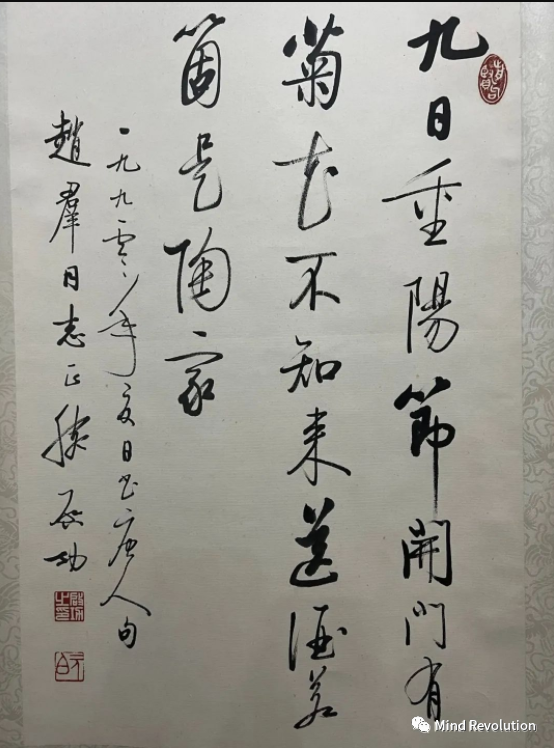 九日重陽節開門有
菊花不知来送酒若
箇是陶家
一九九零年夏日书唐人句
趙羣同志正腕 启功
啟功之印
元白
Mind Revolution